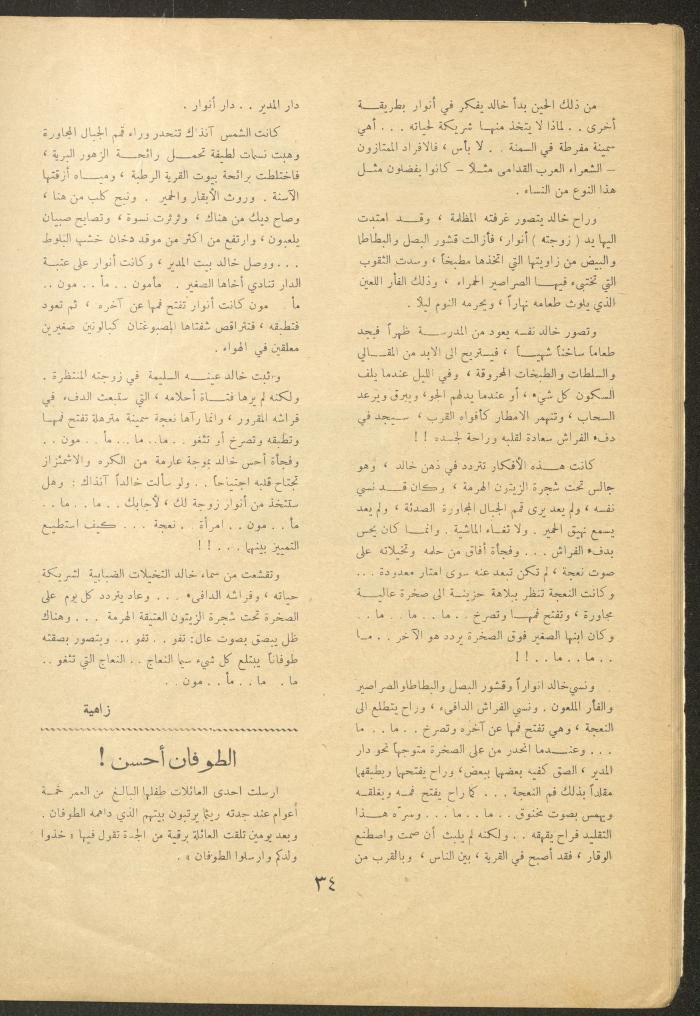 من ذلك الحين بدأ خالد يفكر في أنوار بطريقة
أخرى . . لماذا لا يتخذ منها شريكة لحياته . . . أهي
سمينة مفرطة في السمنة . . لا بأس ، فالافراد الممتازون
– الشعراء العرب القدامى مثلاً – كانوا يفضلون مثل
هذا النوع من النساء .
وراح خالد يتصور غرفته المظلمة ، وقد امتدت
اليها يد ( زوجته ) أنوار ، فأزالت قشور البصل والبطاطا
والبيض من زاويتها التي اتخذها مطبخاً ، وسدت الثقوب
التي تختبىء فيها الصراصير الحمراء ، وذلك الفأر اللعين
الذي يلوث طعامه نهاراً ، ويحرمه النوم ليلاً .
وتصور خالد نفسه يعود من المدرسة ظهراً فيجد
طعاماً ساخناً شهياً ، فيستريح الى الابد من المقالي
والسلطات والطبخات المحروقة ، وفي الليل عندما يلف
السكون كل شيء ، أو عندما يدلهم الجو ، ويبرق ويرعد
السحاب ، وتنهمر الامطار كأفواه القرب ، سيجد في
دفء الفراش سعادة لقلبه وراحة لجسده ! !
كانت هذه الأفكار تتردد في ذهن خالد ، وهو
جالس تحت شجرة الزيتون الهرمة ، وكان قد نسي
نفسه ، ولم يعد يرى قمم الجبال المجاورة الصدئة ، ولم يعد
يسمع نهيق الحمير . ولا ثغاء الماشية . وانما كان يحس
بدفء الفراش . . . وفجأة أفاق من حلمه وتخيلاته على
صوت نعجة ، لم تكن تبعد عنه سوى امتار معدودة . . .
وكانت النعجة تنظر ببلاهة حزينة الى صخرة عالية
مجاورة ، وتفتح فمها وتصرخ . . ما . . ما . . ما . .
وكان ابنها الصغير فوق الصخرة يردد هو الآخر . . ما
. . ما . . ما . . ! !
ونسي خالد انواراً وقشور البصل والبطاطا والصراصير
والفأر الملعون . ونسي الفراش الدافىء ، وراح يتطلع الى
النعجة ، وهي تفتح فمها عن آخره وتصرخ . . ما . . ما
. . . وعندما انحدر من على الصخرة متوجهاً نحو دار
المدير ، الصق كفيه بعضها ببعض ، وراح يفتحها ويطبقها
مقلداً بذلك فم النعجة . . . كما راح يفتح فمه ويغلقه
ويهمس بصوت مخنوق . . ما . . ما . . . وسرّه هذا
التقليد فراح يقهقه . . ولكنه لم يلبث أن صمت واصطنع
الوقار ، فقد أصبح في القرية ، بين الناس ، وبالقرب من
دار المدير . . دار أنوار .
كانت الشمس آنذاك تنحدر وراء قمم الجبال المجاورة
وهبت نسمات لطيفة تحمل رائحة الزهور البرية ،
فاختلطت برائحة بيوت القرية الرطبة ، ومياه أزقتها
الآسنة . وروث الأبقار والحمير . ونبح كلب من هنا ،
وصاح ديك من هناك ، وثرثرت نسوة ، وتصايح صبيان
يلعبون ، وارتفع من اكثر من موقد دخان خشب البلوط
. . . ووصل خالد بيت المدير ، وكانت أنوار على عتبة
الدار تنادي أخاها الصغير . مأمون . . مأ . . مون . .
مأ . مون كانت أنوار تفتح فمها عن آخره ، ثم تعود
فتطبقه ، فتتراقص شفتاها المصبوغتان كبالونين صغيرين
معلقين في الهواء .
وثبت خالد عينه السليمة في زوجته المنتظرة .
ولكنه لم يرها فتاة أحلامه ، التي ستبعث الدفء في
فراشه المقرور ، وانما رآها نعجة سمينة مترهلة تفتح فمها
وتطبقه وتصرخ أو تثغو . . ما . . ما . . مأ . . مون . .
وفجأة أحس خالد بموجة عارمة من الكره والاشمئزاز
تجتاح قلبه اجتياحاً . . ولو سألت خالداً آنذاك : وهل
ستتخذ من أنوار زوجة لك ، لأجابك . . ما . . ما . .
مأ . . مون . . امرأة . . نعجة . . . كيف استطيع
التمييز بينها . . . ! !
وتقشعت من سماء خالد التخيلات الضبابية لشريكة
حياته ، وفراشه الدافىء . . . وعاد يتردد كل يوم على
الصخرة تحت شجرة الزيتون العتيقة الهرمة . . . وهناك
ظل يبصق بصوت عال : تفو . . تفو . . ويتصور بصقته
طوفاناً يبتلع كل شيء سيما النعاج . . النعاج التي تثغو . .
ما . ما . . مأ . . مون . .
زاهية
الطوفان أحسن !
ارسلت احدى العائلات طفلها البالغ من العمر خمسة
أعوام عند جدته ريثما يرتبون بيتهم الذي داهمه الطوفان .
وبعد يومين تلقت العائلة برقية من الجدة تقول فيها « خذوا
ولدكم وارسلوا الطوفان » .
٣٤